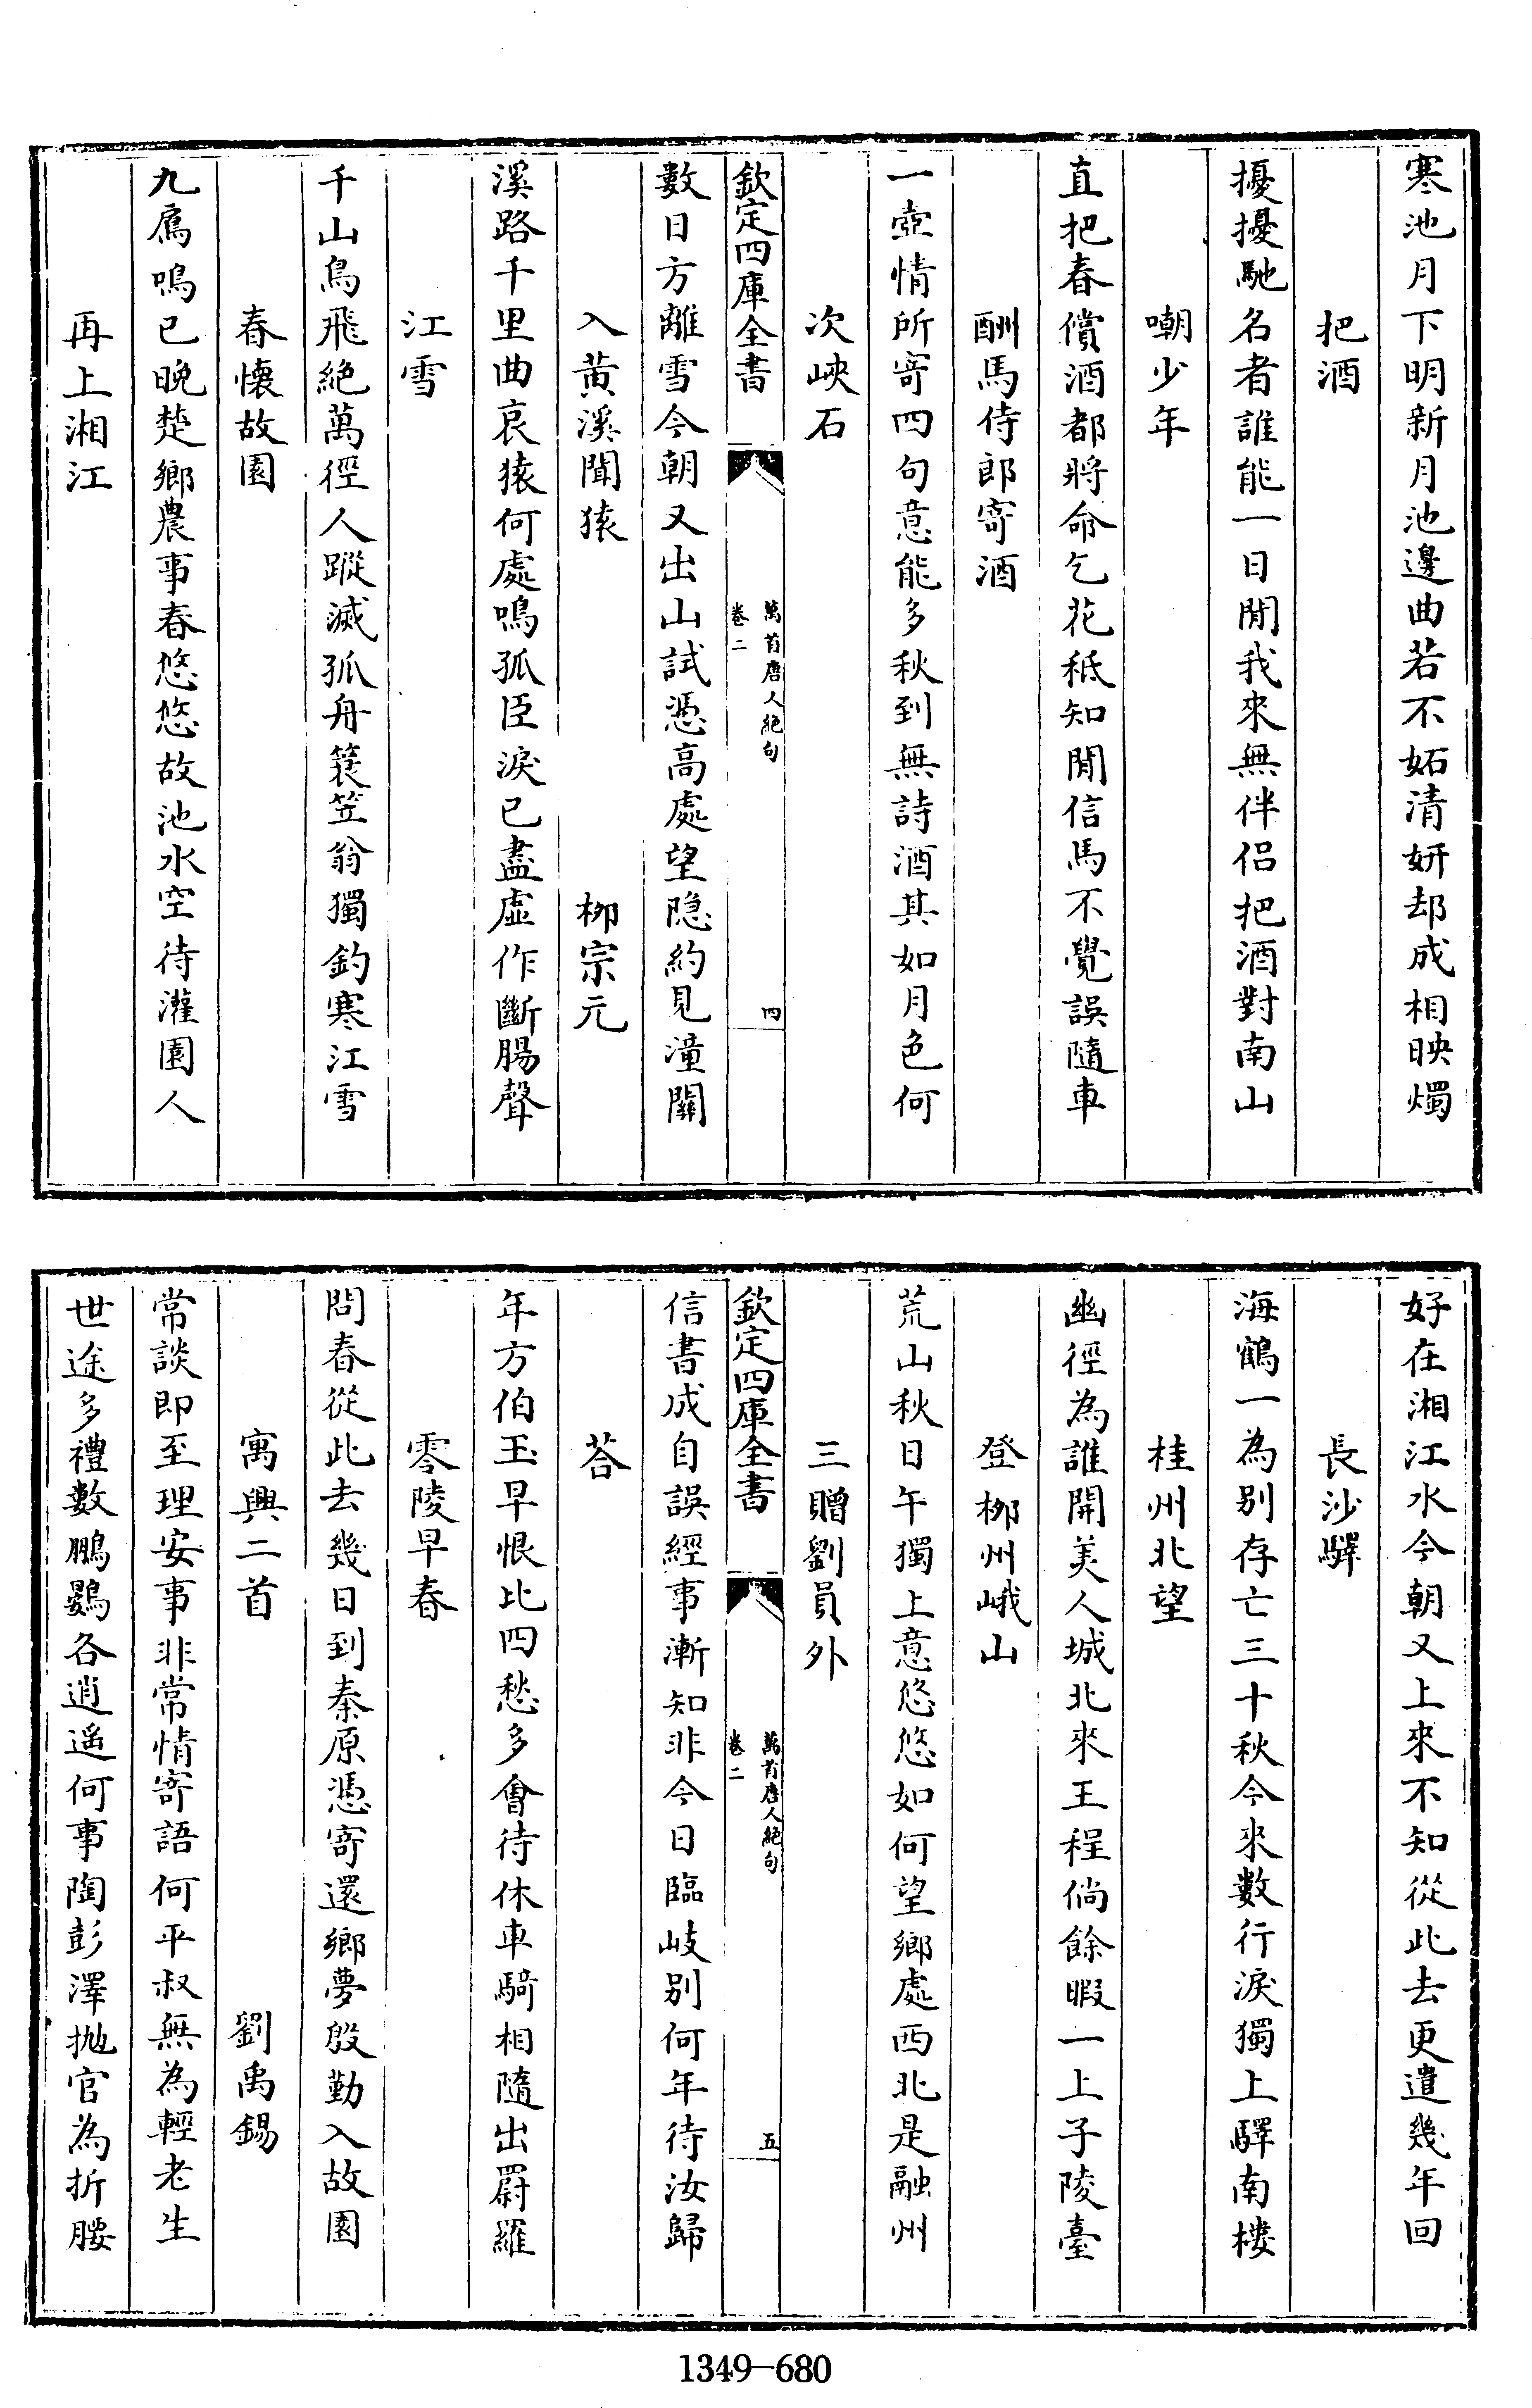 寒池月下明新月池邊曲若不妬清妍却成相映燭
把酒
擾擾馳名者誰能一日閒我來無伴侣把酒對南山
嘲少年
直把春償酒都將命乞花秪知閒信馬不覺誤隨車
酬馬侍郎寄酒
一壺情所寄四句意能多秋到無詩酒其如月色何
次峽石
欽定四庫全書
萬首唐人絶句
卷二
四
數日方離雪今朝又出山試憑高處望隐約見潼關
入黄溪聞猿 柳宗元
溪路千里曲哀猿何處鳴孤臣淚已盡虚作斷腸聲
江雪
千山鳥飛絶萬徑人蹤滅孤舟簑笠翁獨釣寒江雪
春懐故園
九鳸鳴已晚楚鄉農事春悠悠故池水空待灌園人
再上湘江
好在湘江水今朝又上來不知從此去更遣幾年回
長沙驛
海鶴一為别存亡三十秋今來數行淚獨上驛南樓
桂州北望
幽徑為誰開美人城北來王程倘餘暇一上子陵臺
登柳州峨山
荒山秋日午獨上意悠悠如何望鄉處西北是融州
三贈劉員外
欽定四庫全書
萬首唐人絶句
卷二
五
信書成自誤經事漸知非今日臨岐别何年待汝歸
荅
年方伯玉早恨比四愁多會待休車騎相隨出罻羅
零陵早春
問春從此去幾日到秦原憑寄還鄉夢殷勤入故園
寓興二首 劉禹錫
常談即至理安事非常情寄語何平叔無為輕老生
世途多禮數鵬鷃各逍遥何事陶彭澤抛官為折腰
1349-680